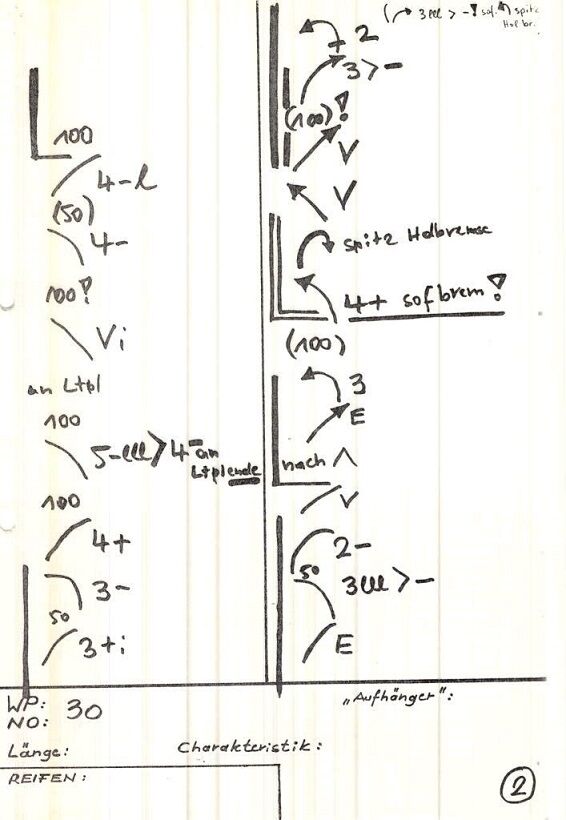 100
4-l
(50)
4-
100?
Vi
an Ltpl
100
5-lll>4- an
Ltplende
100
4+
3-
50
3+i
3lll > -! sof. spitz
+2
3>-
(100)!
V
V
spitz Holbremse
4+ sofbrem!
(100)
3
E
nach Λ
V
2-
50
3lll>-
E
WP:
NO: 30
"Aufhänger":
Länge:
Charakteristik:
REIFEN:
2